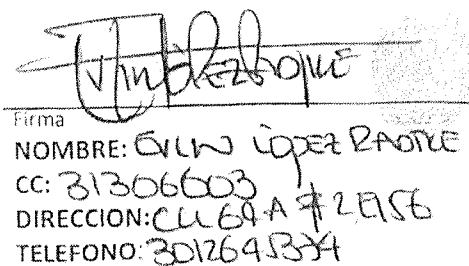 Firma
NOMBRE: EVLIN LÓPEZ
CC: 31306603
DIRECCION: CLL 69A # 2E156
TELEFONO: 3012645334